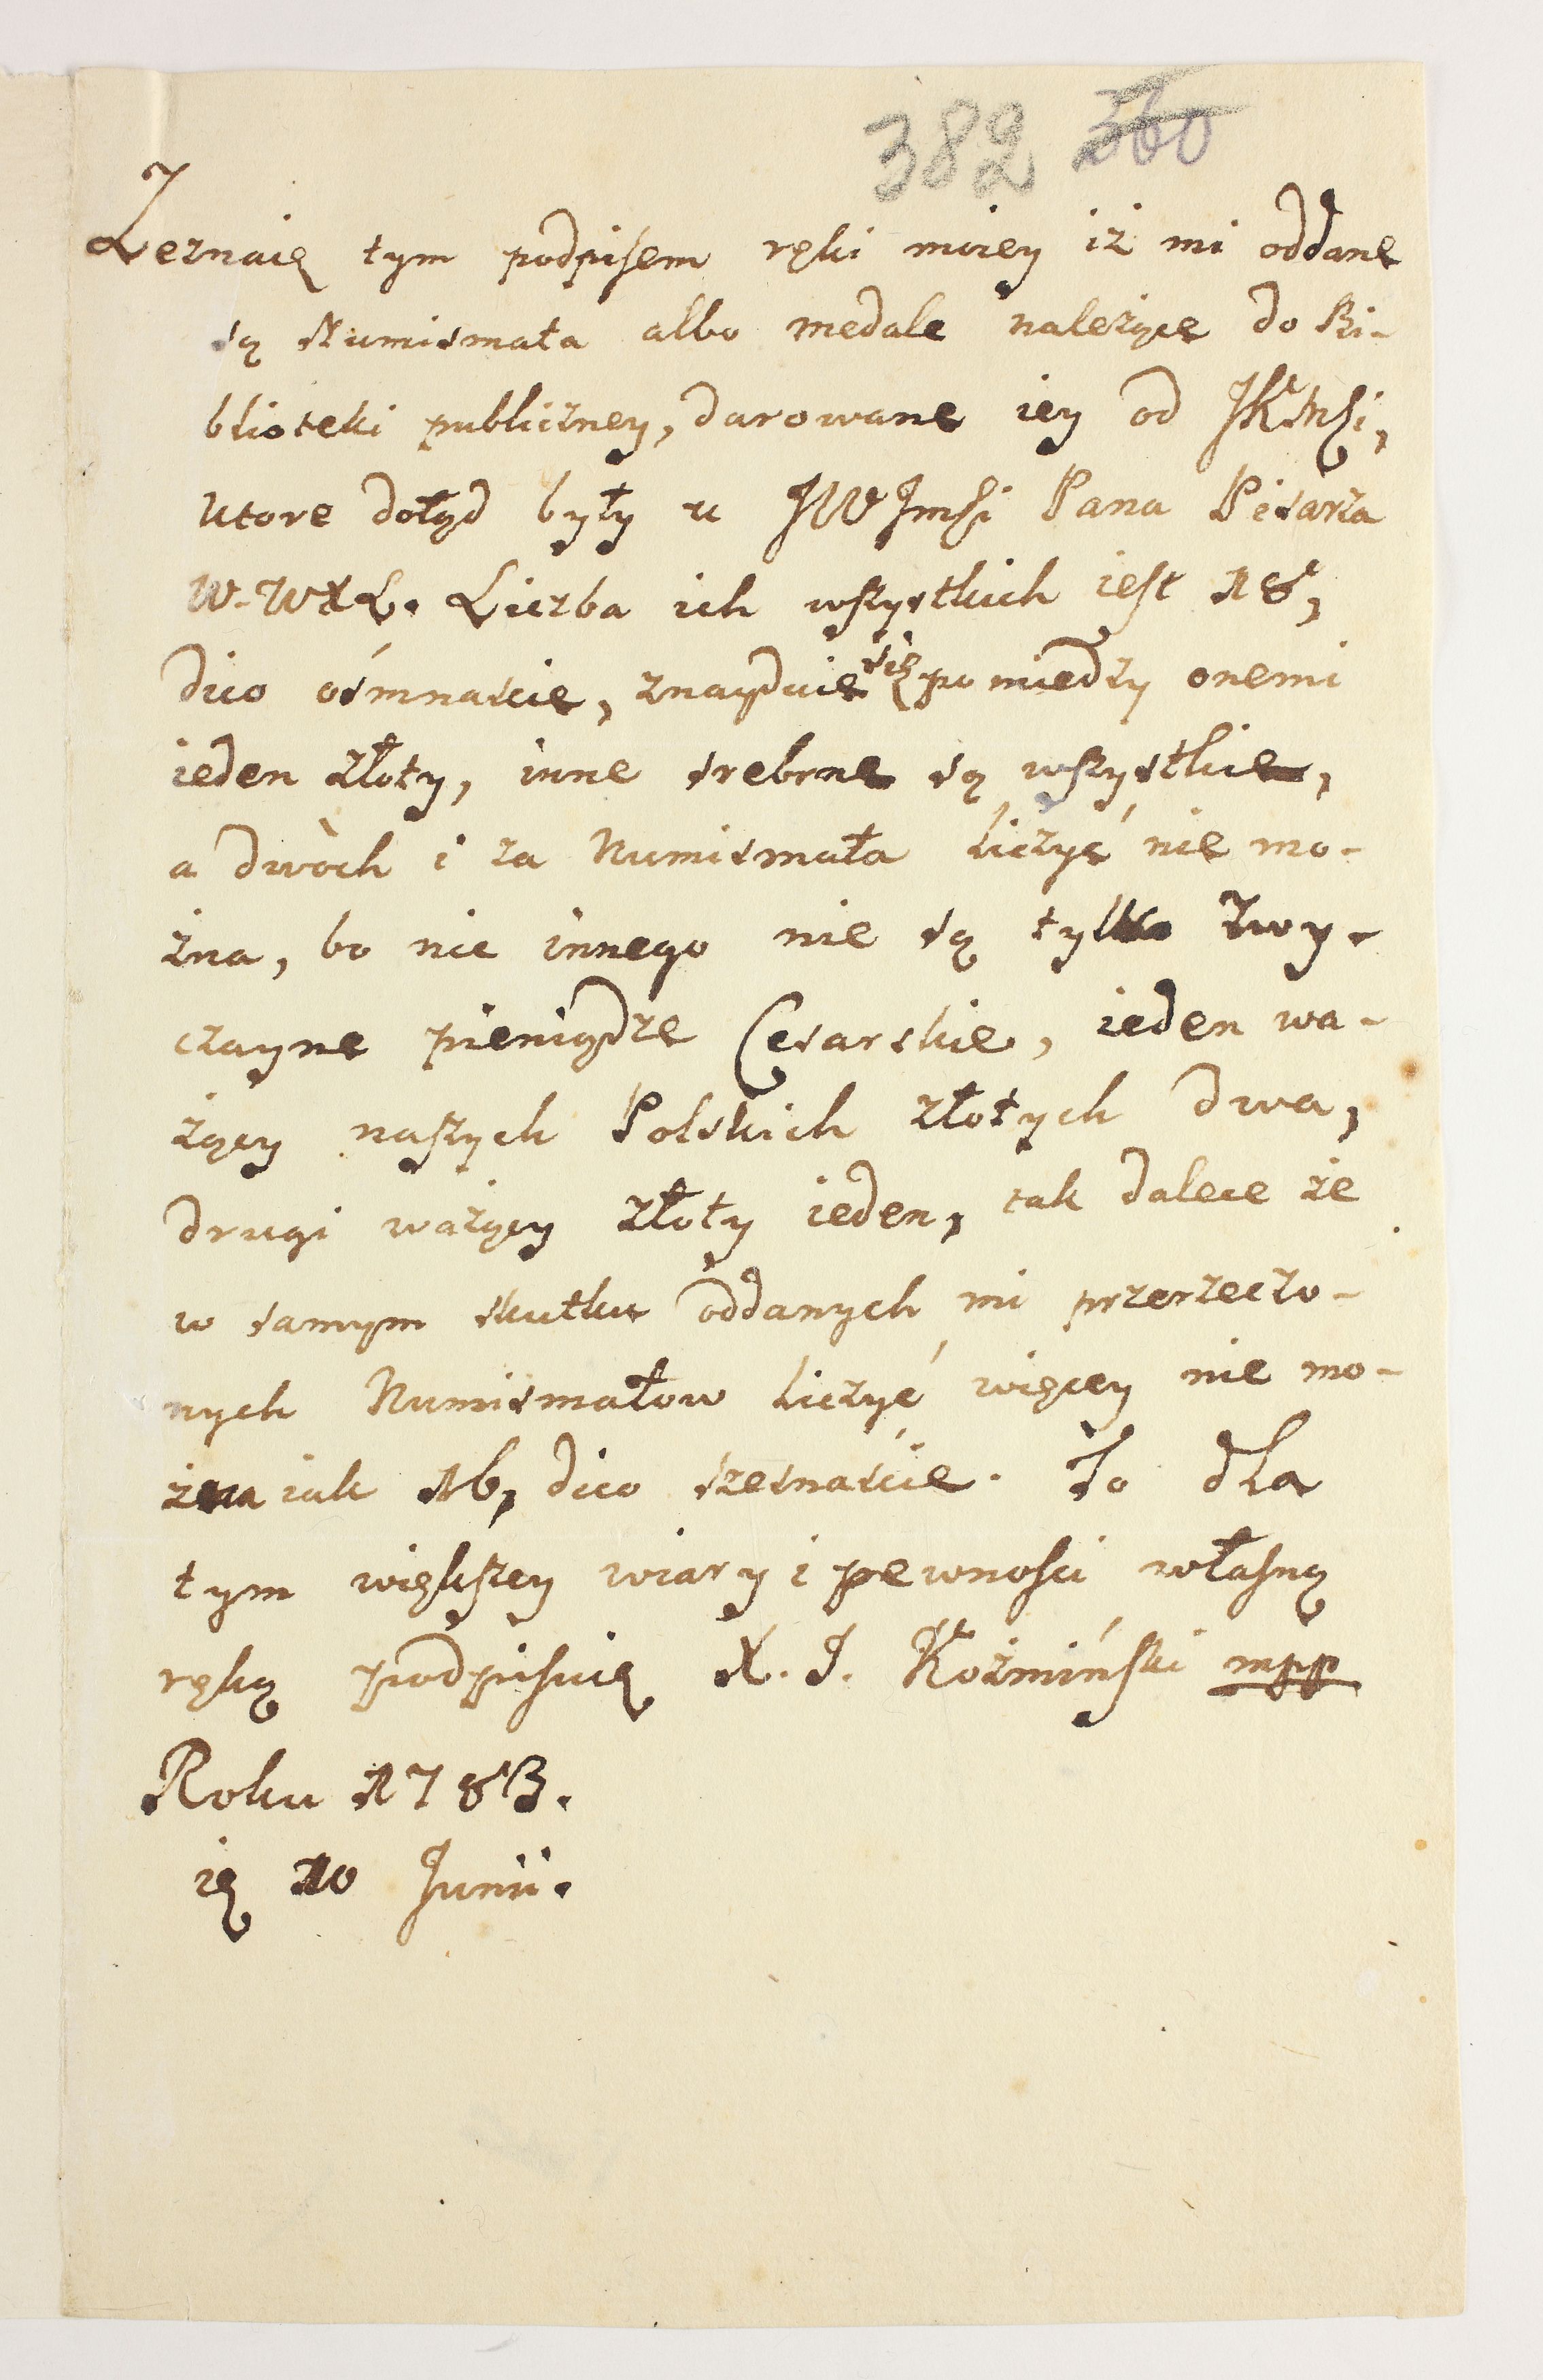 382 360
Zeznaię tym podpisem ręki moiey iż mi oddane
są Numismata albo medale należące do Bi-
blioteki publiczney, darowane iey od JKMsci,
ktore dotąd były u JWJmsci Pana Pisarza
W. WXL. Liczba ich wszystkich iest 18,
dico ośmnascie, znayduie się pomiedzy onemi
ieden złoty, inne srebrne są wszystkie,
a dwòch i za Numismata liczyć nie mo-
żna, bo nic innego nie są tylko zwy-
czayne pieniądze Cesarskie, ieden wa-
żący naszych Polskich złotych dwa,
drugi ważący złoty ieden, tak dalece że
w samym skutku oddanych mi przerzeczo-
nych Numismatow liczyć więcey nie mo-
żna iak 16, dico szesnaście. To dla
tym większey wiary i pewnosci własną
ręką podpisuię X. J. Koźmiński mpp
Roku 1783.
ię 10 Junii.